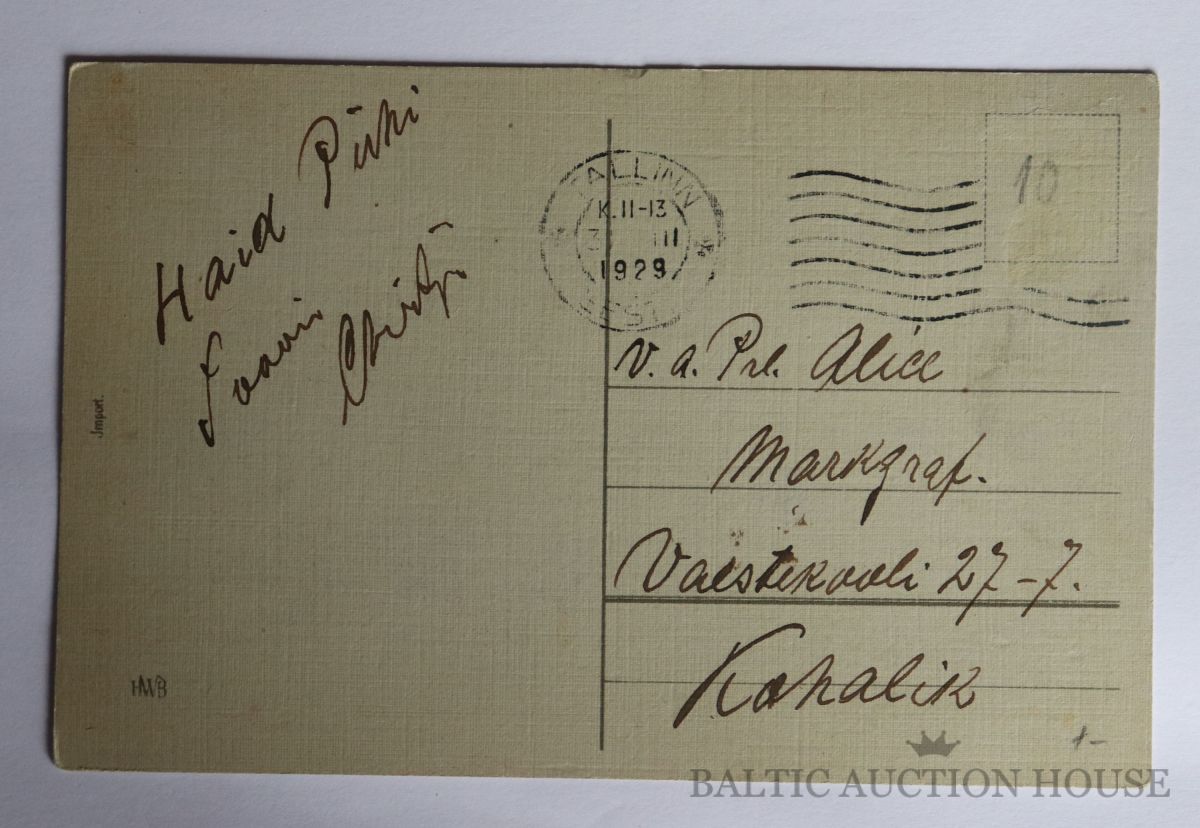 Haid Pühi
Soovin
TALLINN
K. 11-13
III
1929
EESTI
10
V. a. Prl. Alice
Markgraf.
Vaestekooli 27-7.
Kohalik
Import.
HWB
1-
BALTIC AUCTION HOUSE